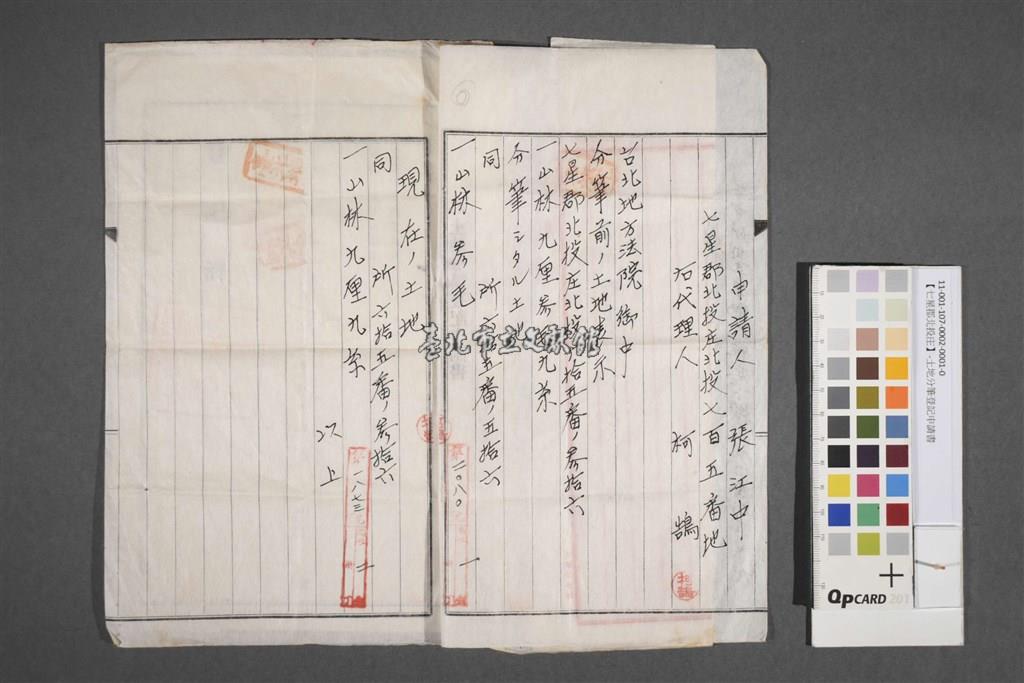 申請人 張江中
七星郡北投庄北投七百五番地
右代理人 柯 鵠
台北地方法院 御中
分筆前ノ土地表示
七星郡北投庄北投六拾五番ノ参拾六
一山林 九厘参毛九糸
分筆シタル土地
同 所六拾五番ノ五拾六
一山林 参毛
第二〇八〇
一
現在ノ土地
同 所六拾五番ノ参拾六
一山林九厘九糸
第一八七三
以上
臺北市立文獻館
11-001-107-0002-0001-0
【七星郡北投庄】-土地分筆登記申請書
QPCARD 201